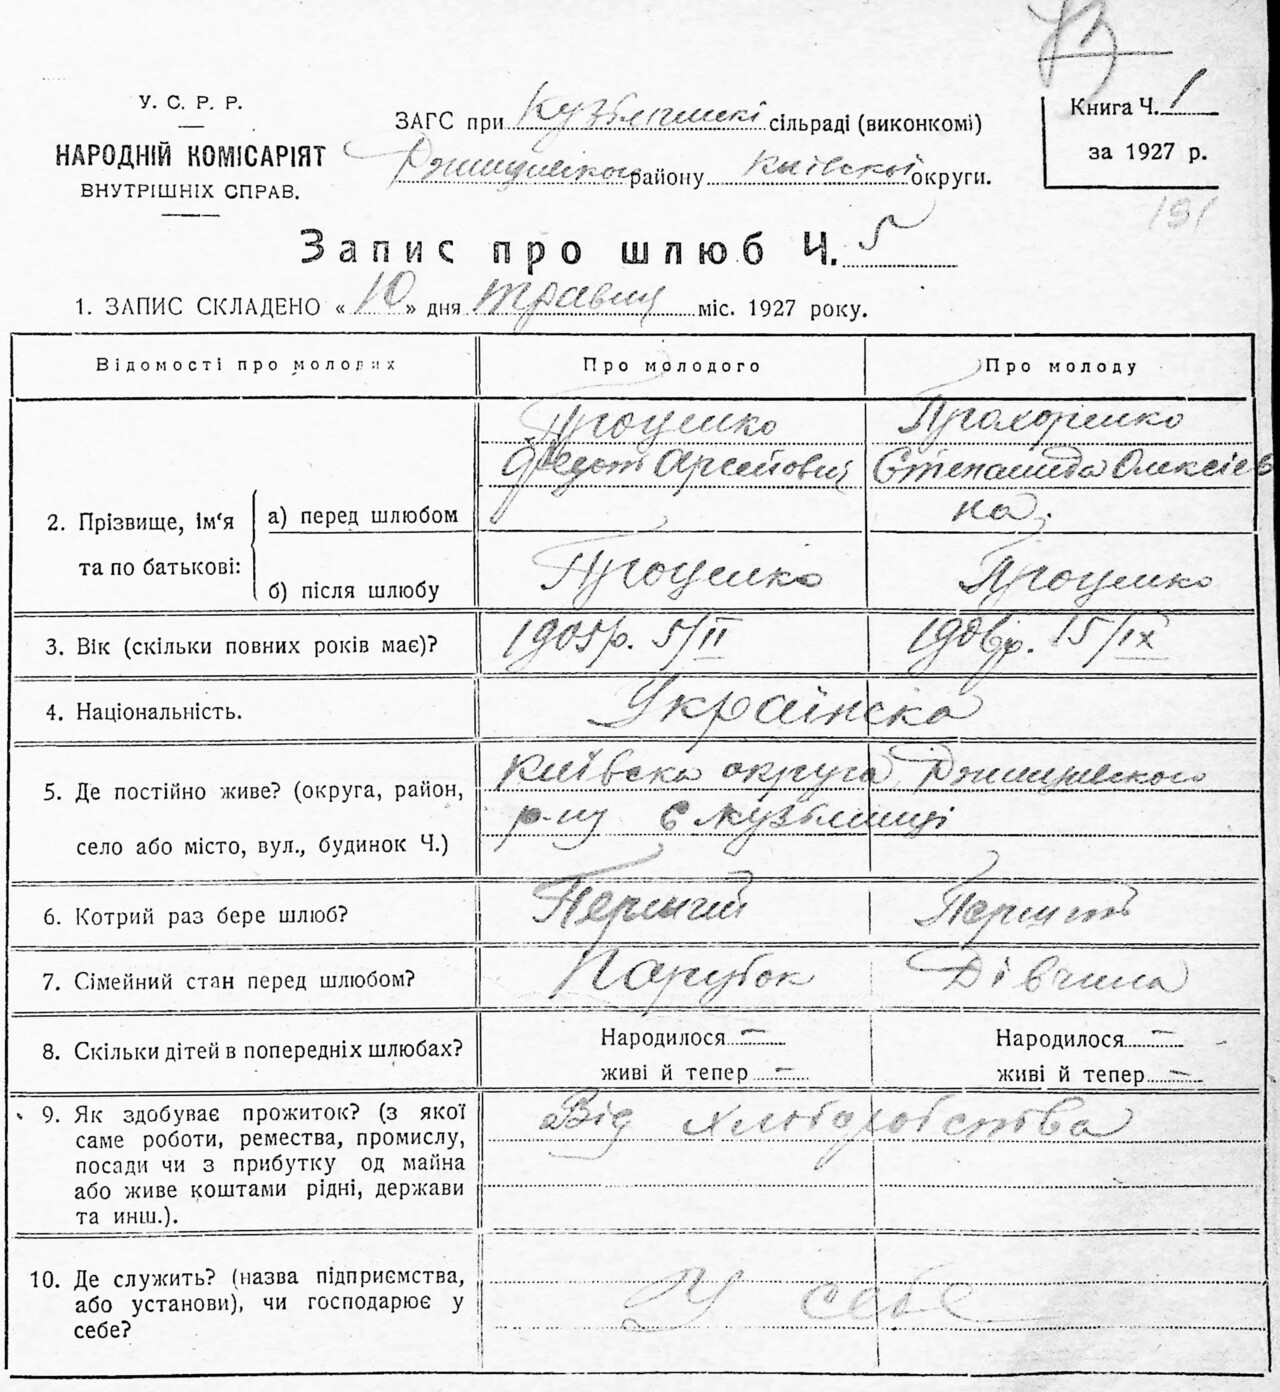 У. С. Р. Р.
НАРОДНІЙ КОМІСАРІЯТ
ВНУТРІШНІХ СПРАВ.
ЗАГС при Кузьминскі сільраді (виконкомі)
Ржищевского району Київскої округи.
Книга Ч. 1
за 1927 р.
191
Запис про шлюб Ч. 5
1. ЗАПИС СКЛАДЕНО « 10 » дня травня міс. 1927 року.
Відомості про молодих
Про молодого
Про молоду
2. Прізвище, ім‘я та по батькові:
а) перед шлюбом
Проценко
Федот Арсенович
Прохоренко
Степанида Олексієв
на.
б) після шлюбу
Проценко
Проценко
3. Вік (скільки повних років має)?
1905р. 5/II
1906р. 15/IX
4. Національність.
Українска
5. Де постійно живе? (округа, район,
село або місто, вул., будинок Ч.)
Київска округа Ржищевского
р-ну с Кузьминці
6. Котрий раз бере шлюб?
Перший
Перший
7. Сімейний стан перед шлюбом?
Парубок
Дівчина
8. Скільки дітей в попередніх шлюбах?
Народилося —
живі й тепер —
Народилося —
живі й тепер —
9. Як здобуває прожиток? (з якої
саме роботи, ремества, промислу,
посади чи з прибутку од майна
або живе коштами рідні, держави
та инш.).
Від хліборобства
10. Де служить? (назва підприємства,
або установи), чи господарює у
себе?
У себе